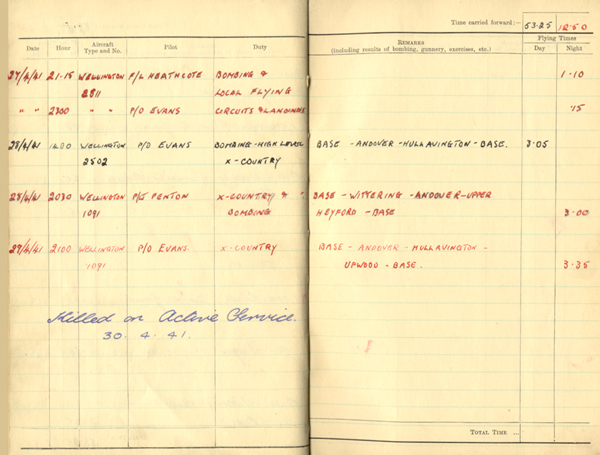 Time carried forward:— 53.25 12.50
Date Hour Aircraft Type and No. Pilot Duty Remarks (including results of bombing, gunnery, exercises, etc.) Flying Times
Day Night
27/4/41 21.15 WELLINGTON F/L HEATHCOTE BOMBING & 1.10
2811 LOCAL FLYING
" " 2300 " " P/O EVANS CIRCUITS & LANDINGS .15
28/4/41 1400 WELLINGTON P/O EVANS BOMBING-HIGH LEVEL BASE - ANDOVER - HULLAVINGTON - BASE. 3.05
2502 X-COUNTRY
28/4/41 2030 WELLINGTON FENTON X-COUNTRY & BASE - WITTERING - ANDOVER - UPPER
1091 BOMBING HEYFORD - BASE 3.00
29/4/41 2100 WELLINGTON P/O EVANS. X-COUNTRY BASE - ANDOVER - HULLAVINGTON -
1091 UPWOOD - BASE. 3.35
Killed on Active Service.
30. 4. 41.
TOTAL TIME ...